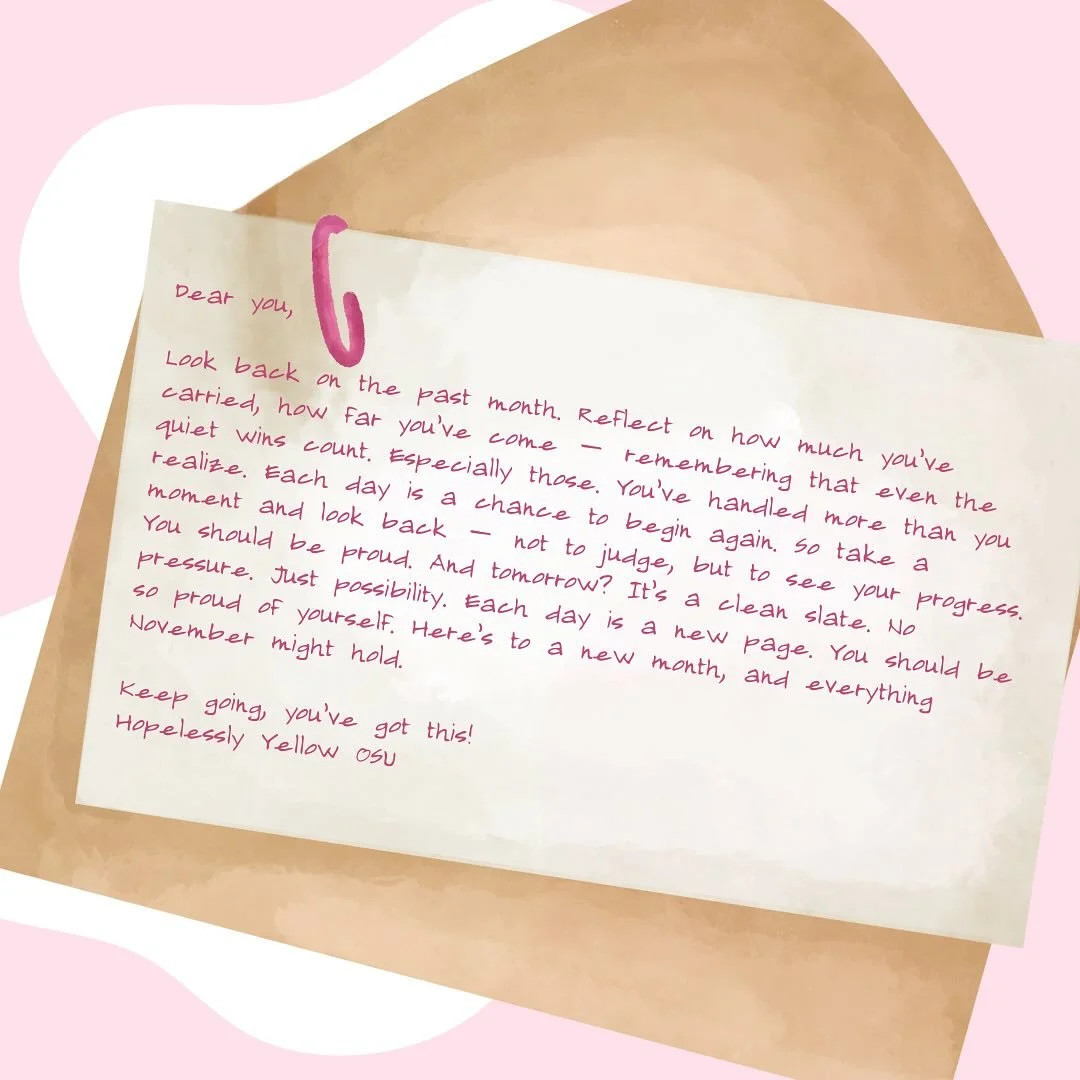 Dear you,
Look back on the past month. Reflect on how much you've
carried, how far you've come — remembering that even the
quiet wins count. Especially those. You've handled more than you
realize. Each day is a chance to begin again. So take a
moment and look back — not to judge, but to see your progress.
You should be proud. And tomorrow? It's a clean slate. No
pressure. Just possibility. Each day is a new page. You should be
so proud of yourself. Here's to a new month, and everything
November might hold.
Keep going, you've got this!
Hopelessly Yellow OSU